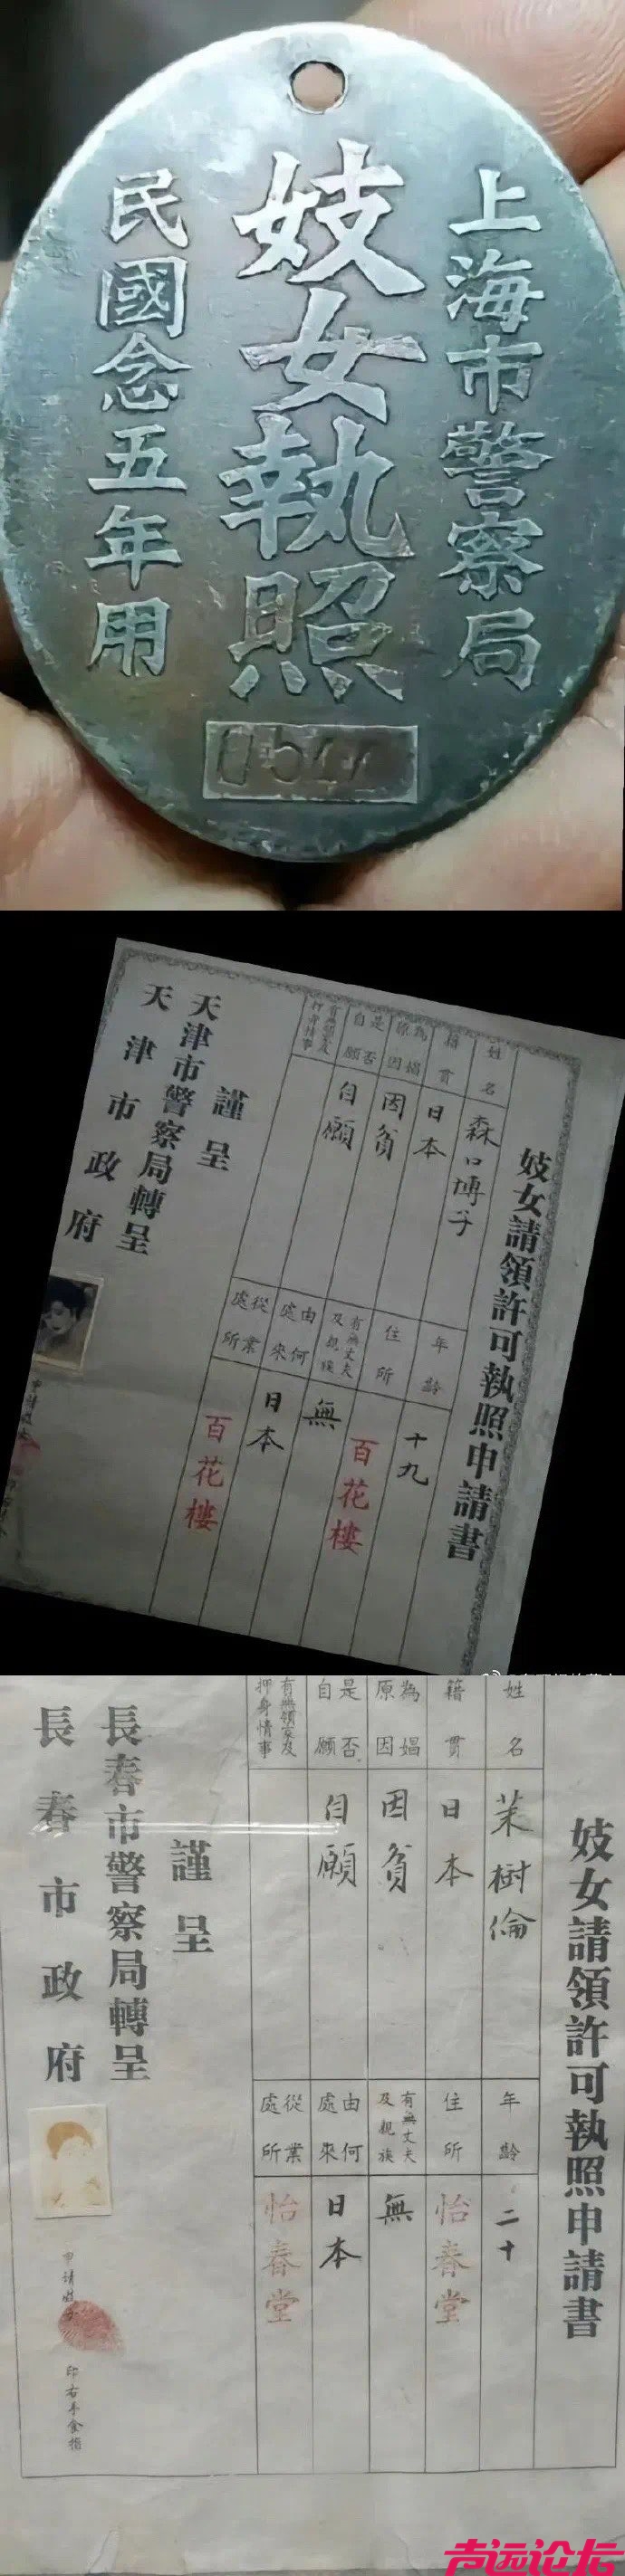 上海市警察局
妓女執照
民國念五年用
妓女請領許可執照申請書
姓名
森口博子
年齡
十九
籍貫
日本
住所
百花樓
為娼原因
因貧
有無丈夫及親族
無
是否自願
自願
由何處來
日本
有無領家及押身情事
從業處所
百花樓
謹呈
天津市警察局轉呈
天津市政府
妓女請領許可執照申請書
姓名
茉樹倫
年齡
二十
籍貫
日本
住所
怡春堂
為娼原因
因貧
有無丈夫及親族
無
是否自願
自願
由何處來
日本
有無領家及押身情事
從業處所
怡春堂
謹呈
長春市警察局轉呈
長春市政府
申請
印右手食指
声远论坛